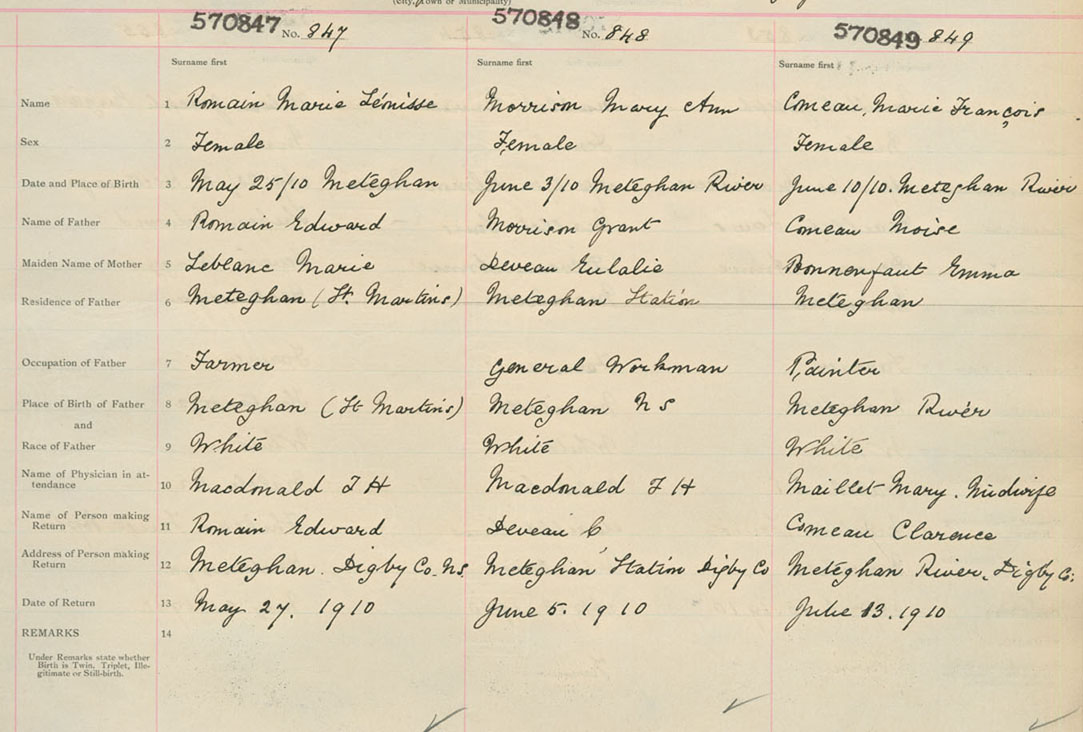 (City, Town or Municipality)
570847 No. 847 570848 No. 848 570849 849
Surname first Surname first Surname first
Name 1 Romain Marie Léonisse Morrison Mary Ann Comeau, Marie François
Sex 2 Female Female Female
Date and Place of Birth 3 May 25/10 Meteghan June 3/10 Meteghan River June 10/10. Meteghan River
Name of Father 4 Romain Edward Morrison Grant Comeau Moise
Maiden Name of Mother 5 Leblanc Marie Deveau Eulalie Bonnenfaut Emma
Residence of Father 6 Meteghan (St. Martins) Meteghan Station Meteghan
Occupation of Father 7 Farmer General Workman Painter
Place of Birth of Father 8 Meteghan (St Martins) Meteghan N S Meteghan River
and
Race of Father 9 White White White
Name of Physician in at-
tendance 10 Macdonald F H Macdonald F H Maillet Mary. Midwife
Name of Person making
Return 11 Romain Edward Deveau C Comeau Clarence
Address of Person making
Return 12 Meteghan. Digby Co. N.S Meteghan Station Digby Co Meteghan River. Digby Co.
Date of Return 13 May 27. 1910 June 5. 1910 13. 1910
REMARKS 14
Under Remarks state whether
Birth is Twin, Triplet, Ille-
gitimate or Still-birth.